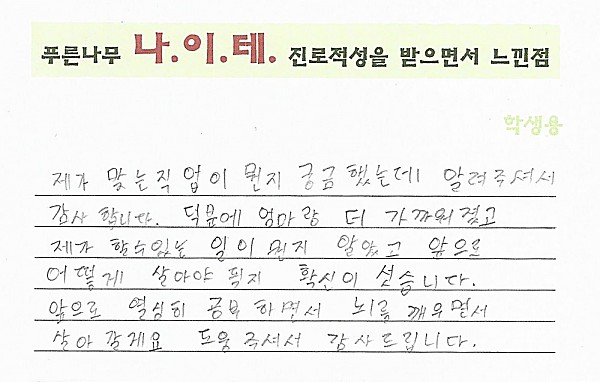 푸른나무 나.이.테. 진로적성을 받으면서 느낀점
학생용
제가 맞는직업이 뭔지 궁금했는데 알려주셔서
감사합니다. 덕분에 엄마랑 더 가까워졌고
제가 할수있는 일이 뭔지 알았고 앞으로
어떻게 살아야 될지 확신이 섯습니다.
앞으로 열심히 공부하면서 뇌를 깨우면서
살아갈게요 도움주셔서 감사드립니다.